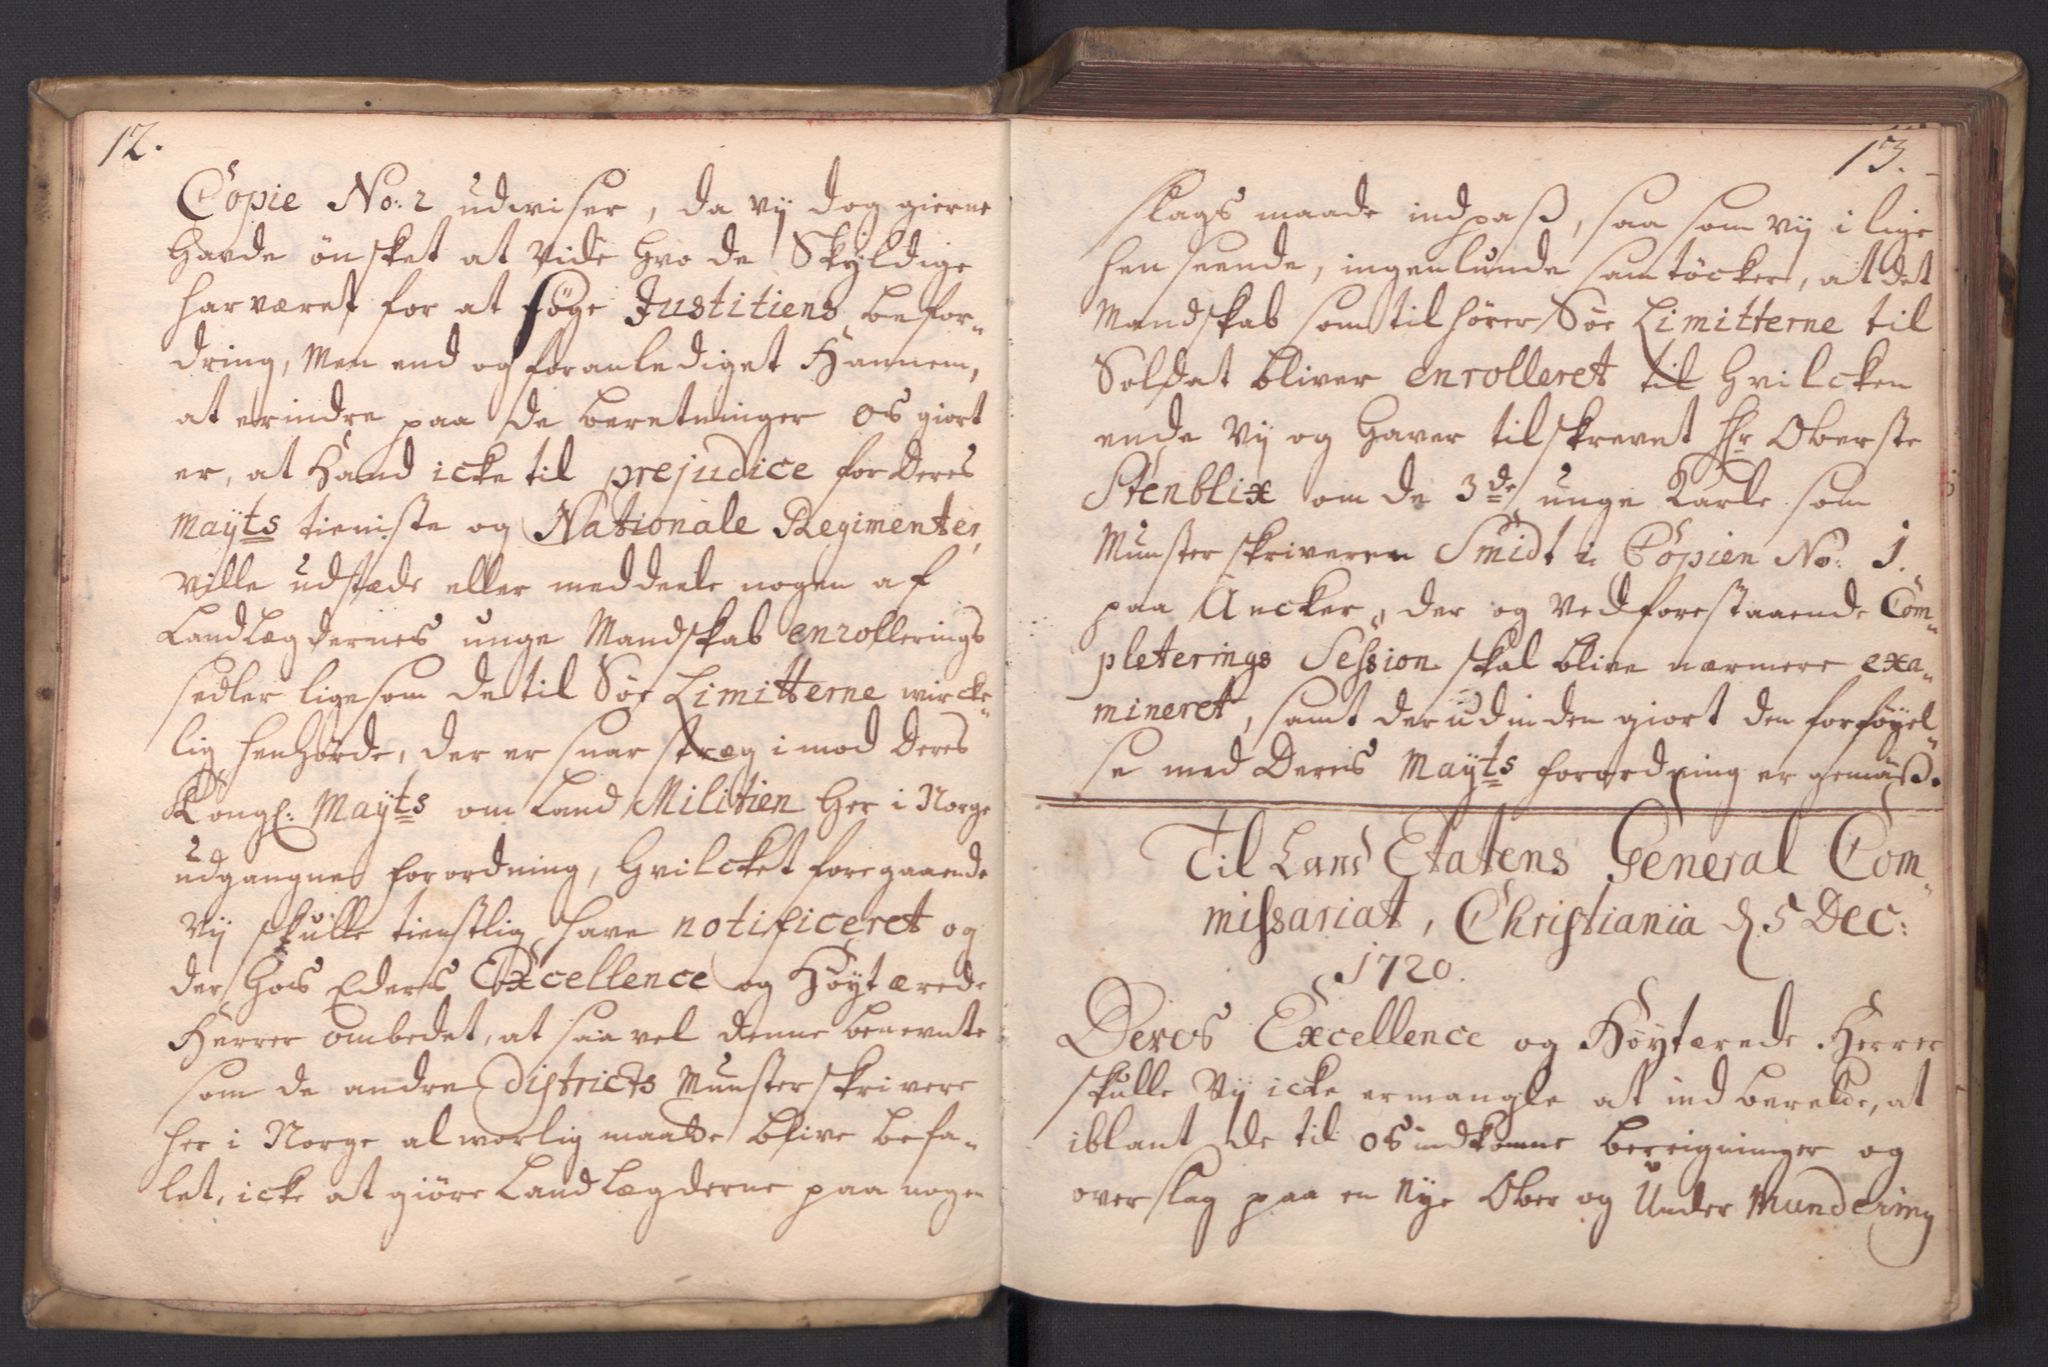 12.
Copie No: 2 udwiser, da vy dog gierne
havde ønsket at vide hvo de Skyldige
har været for at føye Justitiens befor-
dring, Men end og foranlediget Hannem,
at erindre paa de beretninger os giort
er, at Hand icke til prejudice for Deres
Mayts tieniste og Nationale Regimenter,
ville udstæde eller meddeele nogen af
Landlægdernes unge Mandskab enrollerings
sedler ligesom de til Søe Limitterne wircke-
lig henhørde, der er snar stræg imod Deres
Kongl: Mayts om Land Militien her i Norge
udgangne forordning, hvilcket foregaaende
Vy skulle tienstlig have notificeret og
der hos Eders Excellence og Høyt ærede
Herrer ombedet, at saa vel denne benevnte
som de andre Districts Munsterskrivere
her i Norge alworlig maatte blive befa-
let, icke at giøre Landlægderne paa nogen
13.
slags maade indpaß, saa som vy i lige
henseende, ingenlunde samtøcker, at det
Mandskab som tilhører Søe Limitterne til
Soldat bliver enrolleret til hvilcken
ende vy og haver tilskrevet Hr Oberste
Stenblix om de 3de unge Karle som
Munsterskriveren Smidt i Copien No: 1.
paa Ancker, der og ved forestaaende Com-
pleterings Session skal blive nærmere exa-
mineret, samt derudinden giort den forføyel-
se med Deris Mayts forordning er gemäß.
Til Land Etatens General Com-
missariat, Christiania d 5 Dec:
1720.
Deres Excellence og Høytærede Herrer
skulle Vy icke ermangle at ind berette, at
iblant de til os indkomne beregninger og
overslag paa en Nye Ober og Under Mundering